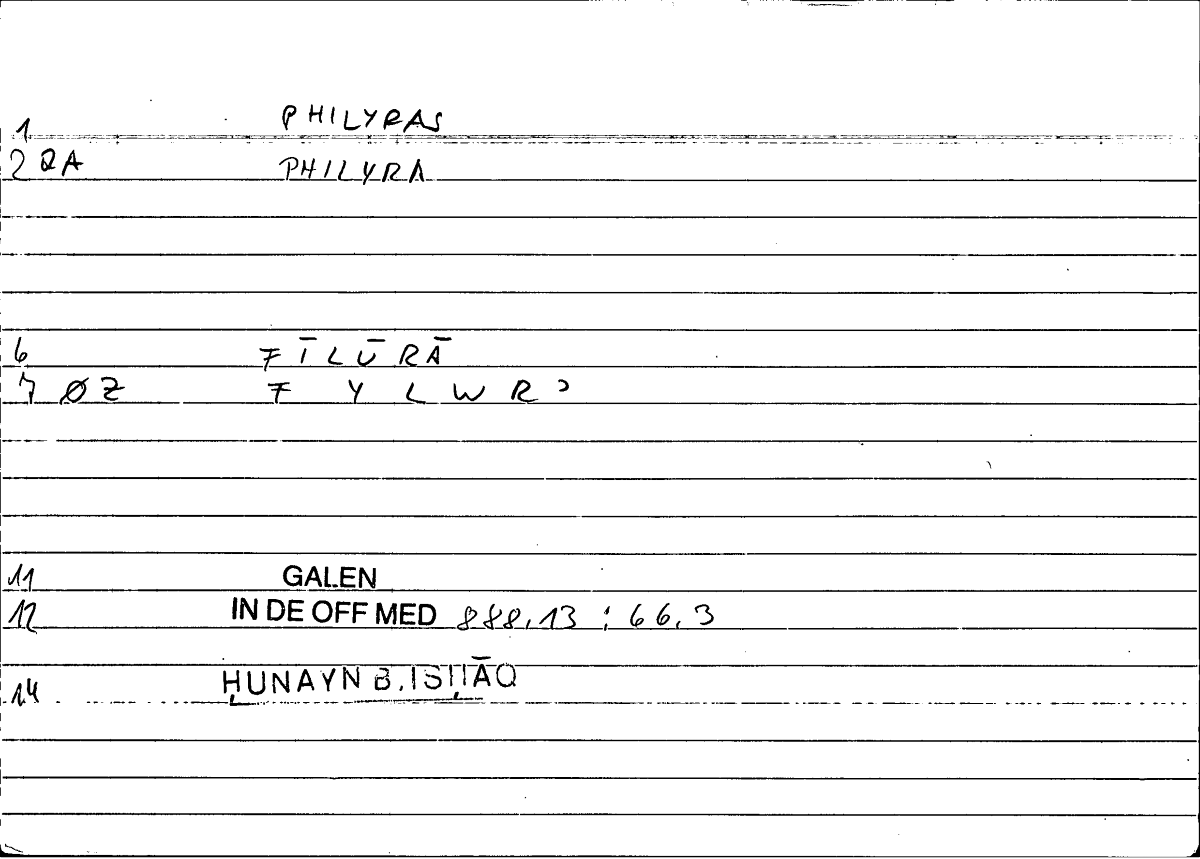 1 PHILYRAS
2 QA PHILYRA
6 FĪLŪRĀ
7 ØZ F Y L W R ɔ
11 GALEN
12 IN DE OFF MED 888,13 : 66,3
14 ḤUNAYN B. ISḤĀQ